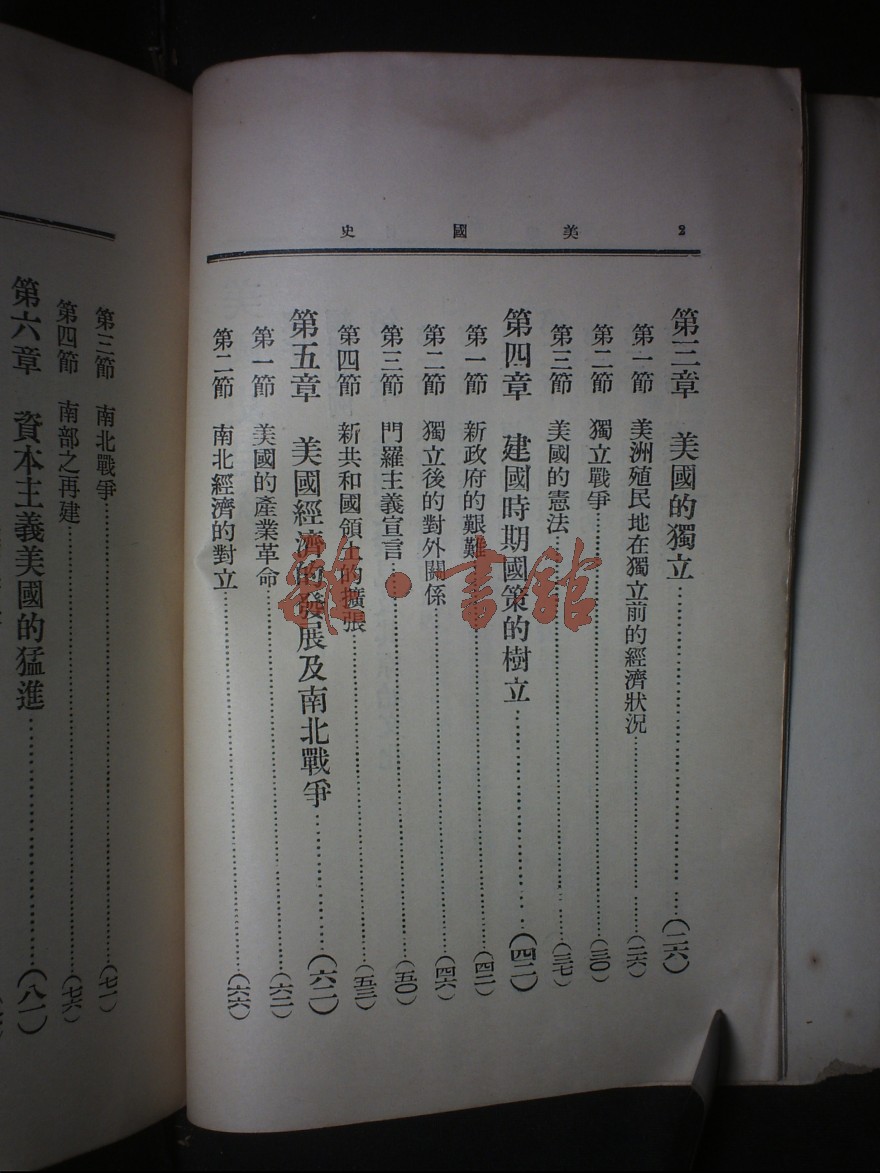 史國美 2
第三章 美國的獨立……(二六)
第一節 美洲殖民地在獨立前的經濟狀況……(二六)
第二節 獨立戰爭……(三〇)
第三節 美國的憲法……(三七)
第四章 建國時期國策的樹立……(四二)
第一節 新政府的艱難……(四二)
第二節 獨立後的對外關係……(四六)
第三節 門羅主義宣言……(五〇)
第四節 新共和國領土的擴張……(五三)
第五章 美國經濟的發展及南北戰爭……(六二)
第一節 美國的產業革命……(六二)
第二節 南北經濟的對立……(六六)
第三節 南北戰爭……(七一)
第四節 南部之再建……(七六)
第六章 資本主義美國的猛進……(八一)
雜·書館